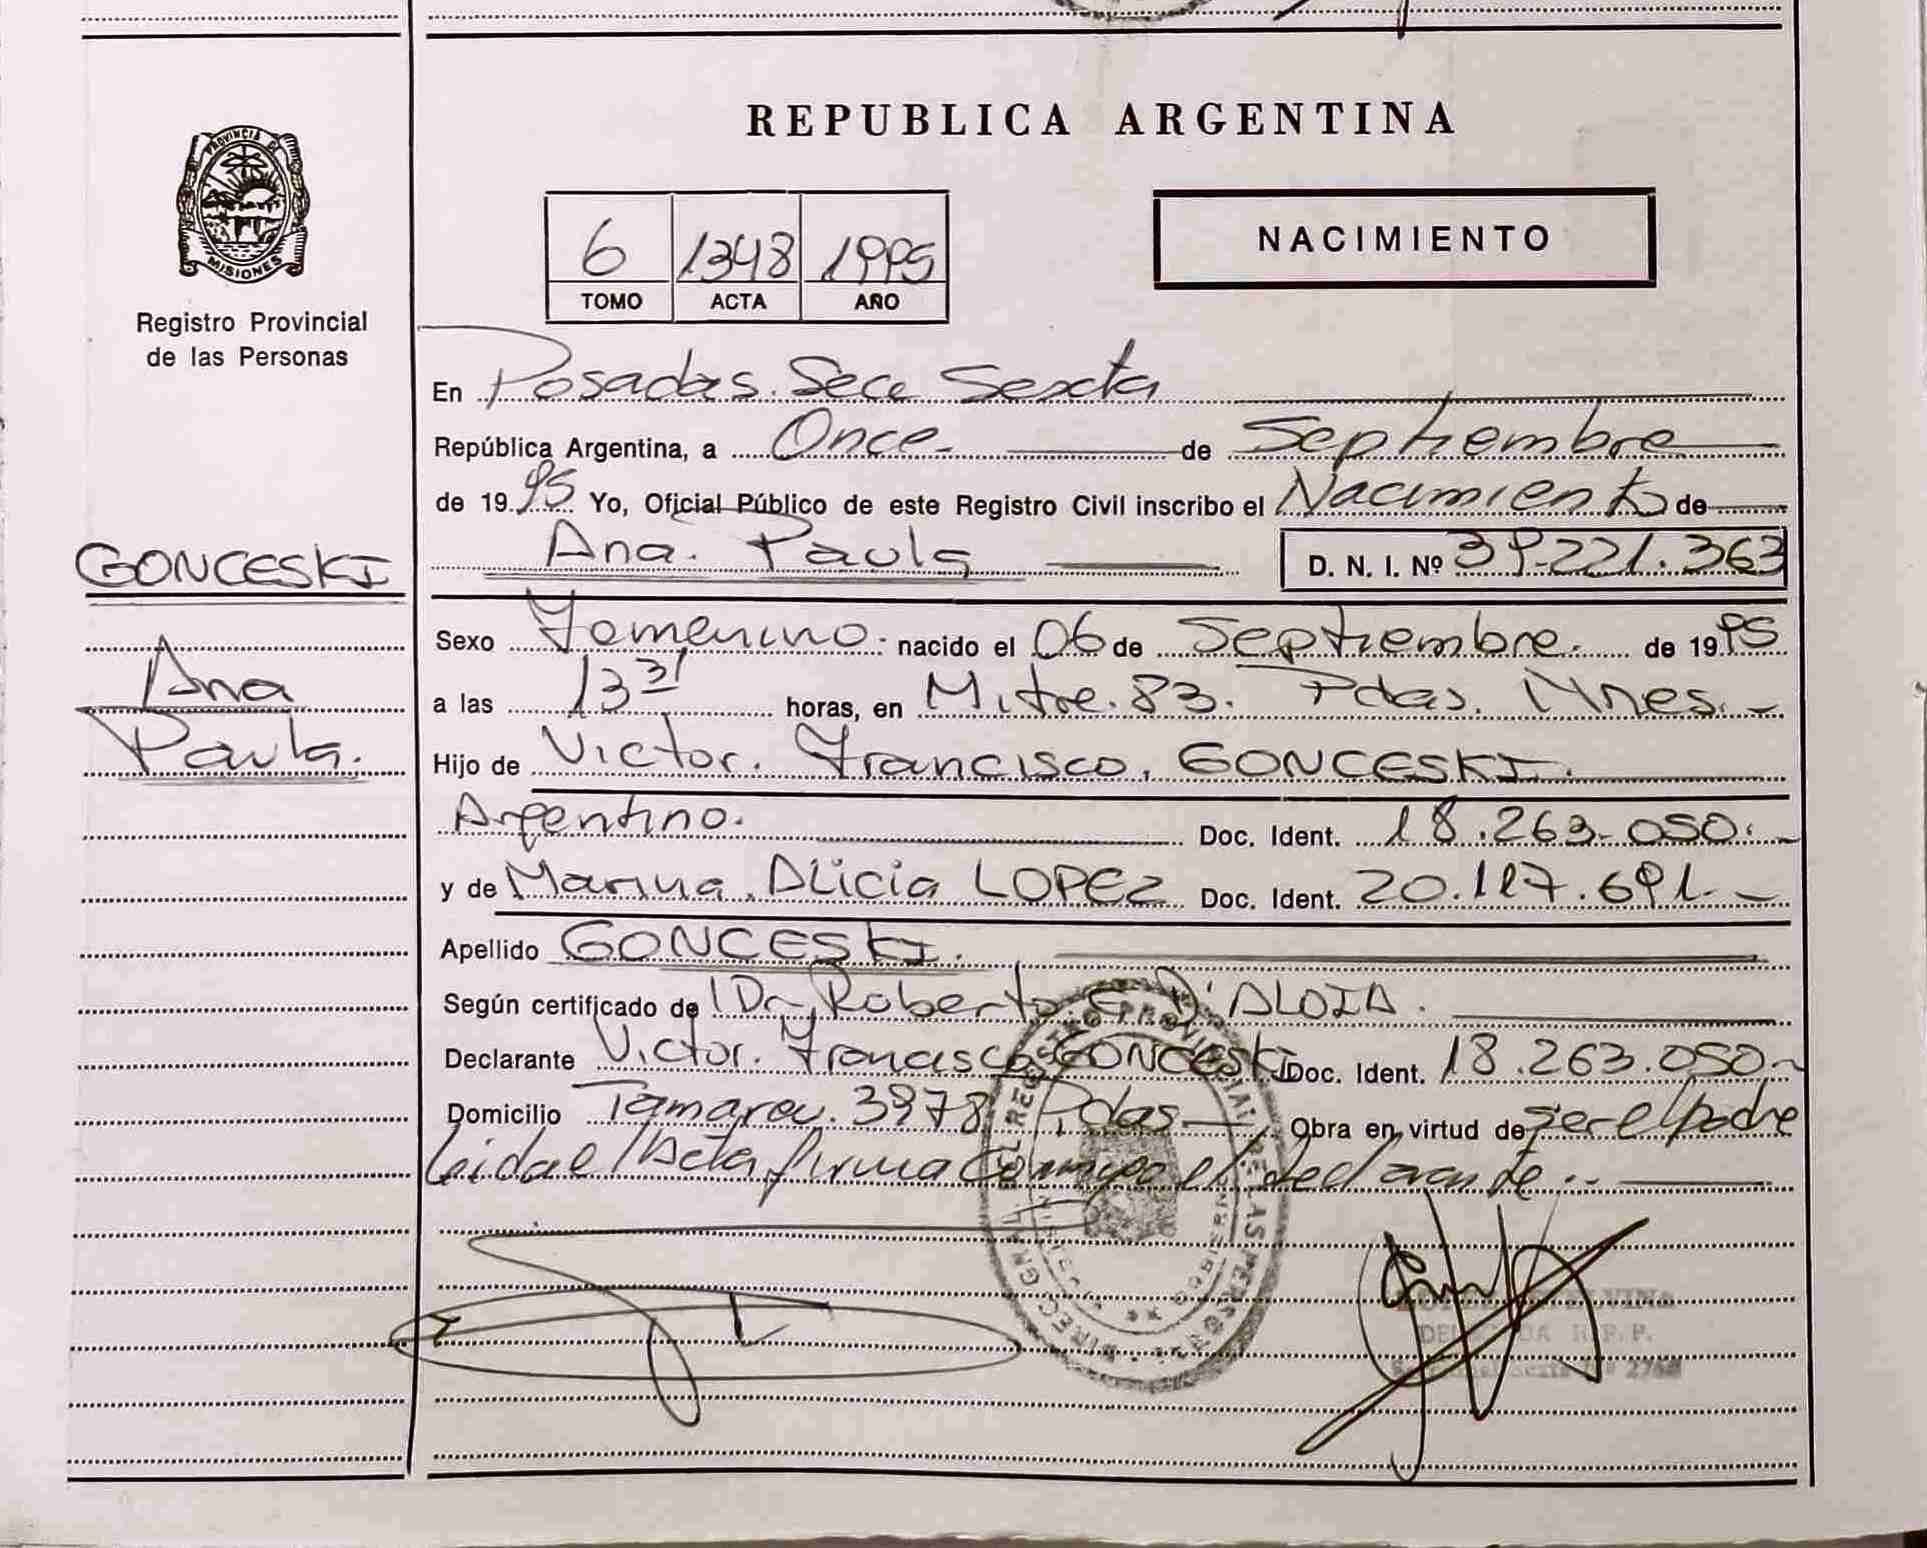 PROVINCIA DE
MISIONES
Registro Provincial
de las Personas
GONCESKI
Ana
Paula.
REPUBLICA ARGENTINA
6 1348 1995
TOMO ACTA AÑO
NACIMIENTO
En Posadas. Secc Sexta
República Argentina, a Once. de Septiembre
de 1995 Yo, Oficial Público de este Registro Civil inscribo el Nacimiento de
Ana. Paula D. N. I. Nº 39.221.363
Sexo Femenino. nacido el 06 de Septiembre. de 1995
a las 13 31 horas, en Mitre. 83. Pdas. Mnes.
Hijo de Victor. Francisco. GONCESKI.
Argentino. Doc. Ident. 18.263.050.
y de Marina. Alicia LOPEZ Doc. Ident. 20.117.691.
Apellido GONCESKI.
Según certificado de Dr. Roberto D'ALOIA.
Declarante Victor. Francisco GONCESKI Doc. Ident. 18.263.050
Domicilio 3978 Pdas Obra en virtud de ser el padre
leida el Acta firma Conmigo el declarante